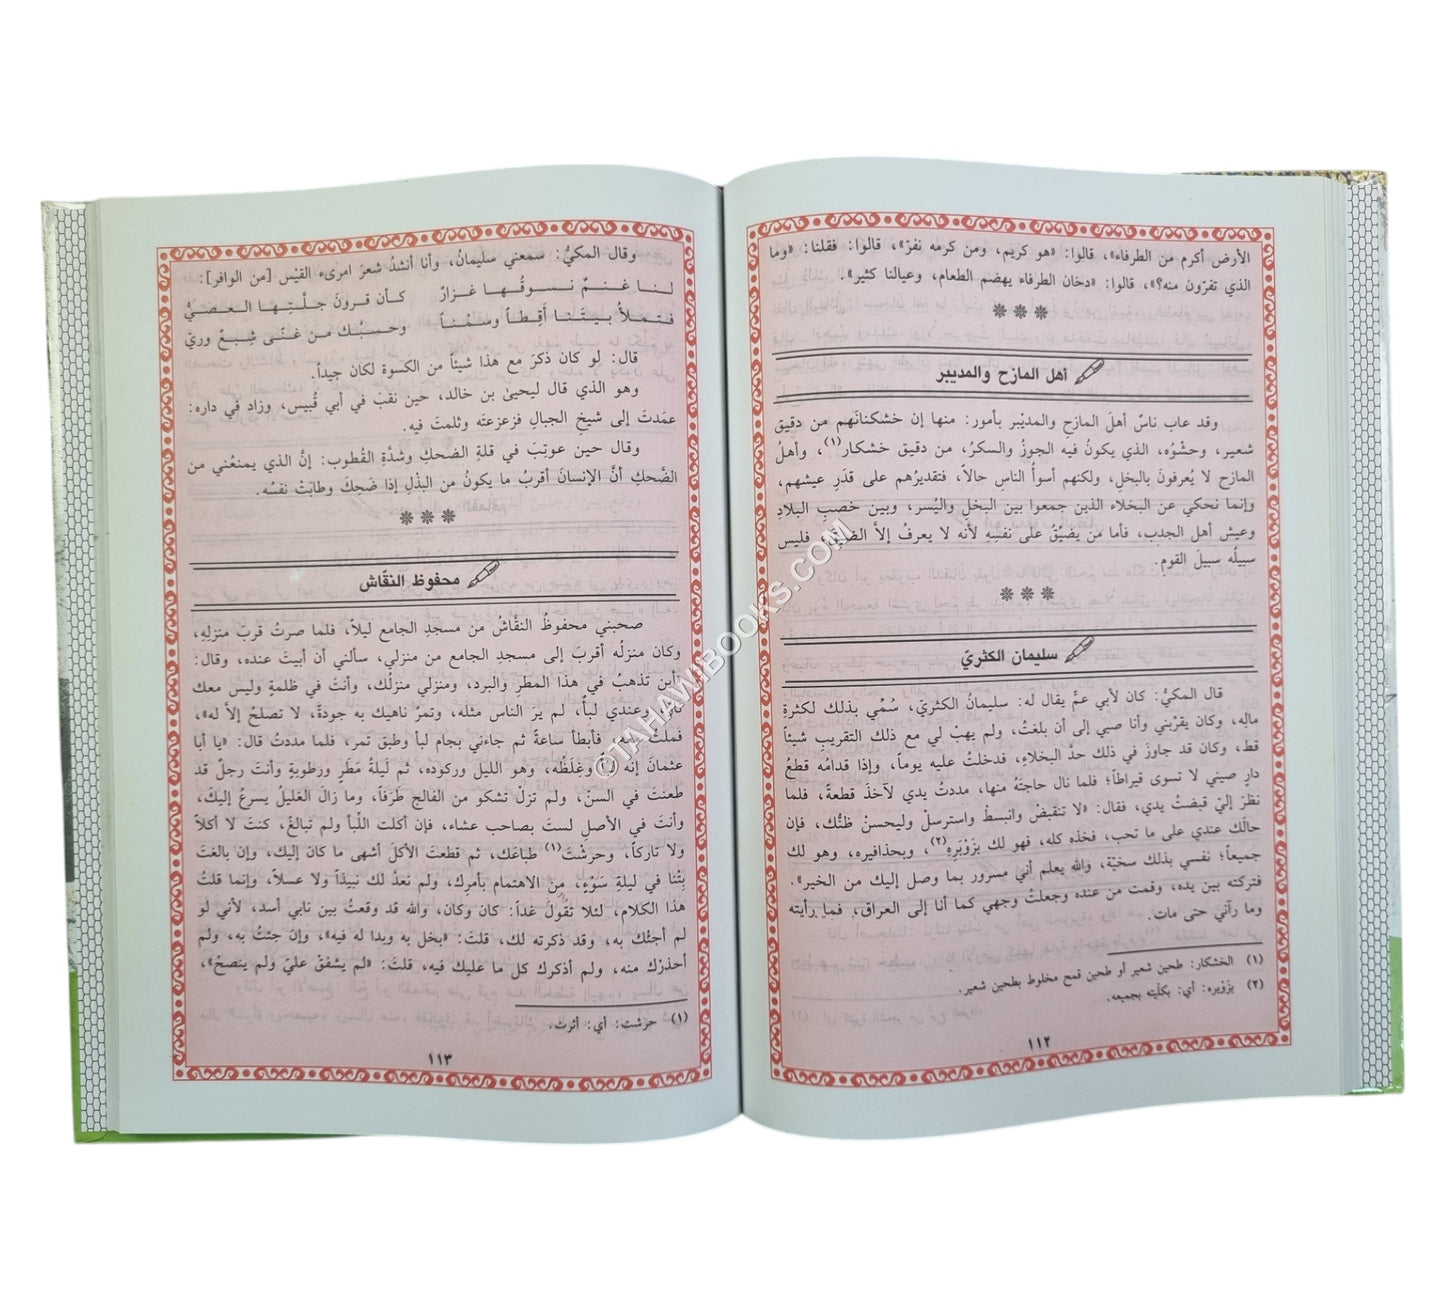 الأرض أكرم من الطرفاء»، قالوا: «هو كريم، ومن كرمه نفرّ»، قالوا: فقلنا: «وما
الذي تفرّون منه؟»، قالوا: «دخان الطرفاء يهضم الطعام، وعيالنا كثير».
أهل المازح والمديبر
وقد عاب ناسٌ أهلَ المازحِ والمديْبر بأمور: منها إن خشكنانَهم من دقيق
شعير، وحشْوُه، الذي يكونُ فيه الجوزُ والسكرُ، من دقيق خشكار(١)، وأهلُ
المازح لا يُعرفونَ بالبخلِ، ولكنهم أسوأُ الناسِ حالاً، فتقديرُهم على قدَرِ عيشهم،
وإنما نحكي عن البخلاء الذين جمعوا بين البخلِ واليُسر، وبين خصبِ البلادِ
وعيش أهل الجدب، فأما من يضيِّقُ على نفسِهِ لأنه لا يعرفُ إلاَّ الضيقَ، فليس
سبيلُه سبيلَ القوم.
سليمان الكثريّ
قال المكيّ: كان لأبي عمٌّ يقال له: سليمانُ الكثريّ، سُمّي بذلك لكثرةِ
مالِه، وكان يقرّبني وأنا صبي إلى أن بلغتُ، ولم يهبْ لي مع ذلك التقريبِ شيئاً
قط، وكان قد جاوزَ في ذلك حدَّ البخلاءِ، فدخلتُ عليه يوماً، وإذا قدامُه قطعُ
دارِ صيني لا تسوى قيراطاً؛ فلما نال حاجتَهُ منها، مددتُ يدي لآخذَ قطعةً، فلما
نظرَ إليّ قبضتُ يدي، فقال: «لا تنقبضْ وانبسطْ واسترسلْ وليحسنْ ظنُّك، فإن
حالَك عندي على ما تحب، فخذه كله، فهو لك بزَوْبَرِهِ(٢)، وبحذافيره، وهو لك
جميعاً؛ نفسي بذلك سخيّة، والله يعلم أني مسرور بما وصل إليك من الخير».
فتركته بين يده، وقمت من عنده وجعلتُ وجهي كما أنا إلى العراق، فما رأيته
وما رآني حتى مات.
(١) الخشكار: طحين شعير أو طحين قمح مخلوط بطحين شعير.
(٢) بزَوْبره: أي: بكلّيته بجميعه.
١١٢
وقال المكيُّ: سمعني سليمانُ، وأنا أنشدُ شعرَ امرىء القيْس [من الوافر]:
لنا غنمٌ نسوقُها غزارُ كأن قرونَ جلَّتِها العصيُّ
فتملأُ بيتَنا أقِطاً وسمْناً وحسبُك من غنًى شِبعٌ وريّ
قال: لو كان ذكرَ مع هذا شيئاً من الكسوة لكان جيداً.
وهو الذي قال ليحيىٰ بن خالد، حين نقبَ في أبي قُبيس، وزاد في داره:
عمَدتَ إلى شيخِ الجبالِ فزعزعتَه وثلمتَ فيه.
وقال حين عوتِبَ في قلةِ الضحكِ وشدَّةِ القُطوب: إنَّ الذي يمنعُني من
الضَّحكِ أنَّ الإنسانَ أقربُ ما يكونُ من البذْلِ إذا ضَحِكَ وطابَتْ نفسُه.
محفوظ النقّاش
صحبني محفوظُ النقَّاشُ من مسجدِ الجامع ليلاً، فلما صرتُ قربَ منزله،
وكان منزلُه أقربَ إلى مسجدِ الجامع من منزلي، سألني أن أبيتَ عنده، وقال:
«أين تذهبُ في هذا المطرِ والبرد، ومنزلي منزلُك، وأنت في ظلمةٍ وليس معك
نارٌ، وعندي لبأٌ، لم يرَ الناس مثلَه، وتمرٌ ناهيك به جودةً، لا تصلحُ إلاَّ له»،
فملتُ معه، فأبطأ ساعةً ثم جاءني بجامِ لبأ وطبقِ تمر، فلما مددتُ قال: «يا أبا
عثمانَ إنَّه لبأٌ وغِلَظُه، وهو الليل وركوده، ثم ليلةُ مَطَرٍ ورطوبةٍ وأنت رجلٌ قد
طعنتَ في السنّ، ولم تزلْ تشكو من الفالجِ طَرَفاً، وما زالَ الغَليلُ يسرعُ إليكَ،
وأنتَ في الأصلِ لستَ بصاحب عشاء، فإن أكلت اللّبأ ولم تبالغْ، كنتَ لا أكلاً
ولا تاركاً، وحرشْتَ(١) طباعَك، ثم قطعتَ الأكلَ أشهى ما كان إليك، وإن بالغتَ
بِتْنا في ليلةِ سَوْءٍ، من الاهتمام بأمرك، ولم نعدَّ لك نبيذاً ولا عسلاً، وإنما قلتُ
هذا الكلام، لئلا تقُولَ غداً: كان وكان، والله قد وقعتُ بين نابي أسد، لأني لو
لم أجئْك به، وقد ذكرته لك، قلتَ: «بخل به وبدا له فيه»، وإن جئتُ به، ولم
أحذرْك منه، ولم أذكرك كل ما عليك فيه، قلتَ: «لم يشفقْ عليّ ولم ينصحْ»،
(١) حرشت: أي: أثرت.
١١٣
©TAHAWIBOOKS.COM